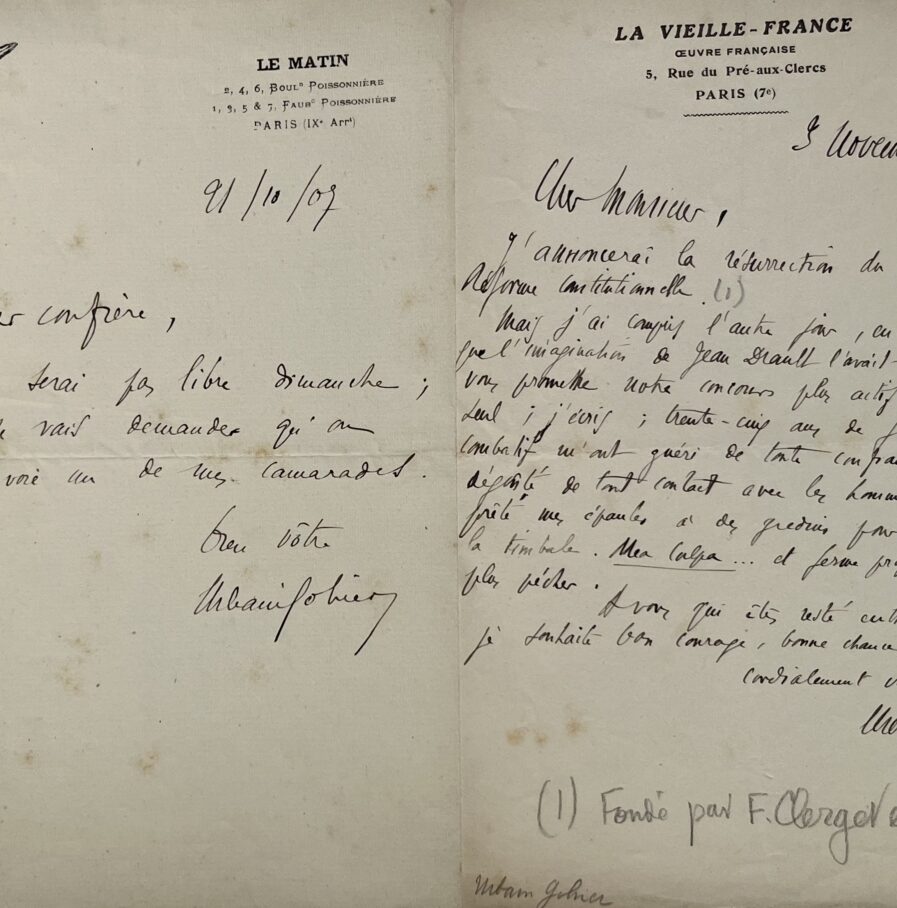 LE MATIN
2, 4, 6, Boulᵈ Poissonnière
1, 3, 5 & 7, Faubᵍ Poissonnière
PARIS (IXᵉ Arrᵗ)
21/10/07
confrère,
serai pas libre dimanche ;
vais demander qu'on
voie un de mes camarades.
bien vôtre
Urbain Gohier
LA VIEILLE-FRANCE
ŒUVRE FRANÇAISE
5, Rue du Pré-aux-Clercs
PARIS (7ᵉ)
3 Novem
Cher Monsieur,
J'annoncerai la résurrection du
Réforme constitutionnelle. (1)
Mais j'ai compris l'autre jour, en
que l'imagination de Jean Drault l'avait
vous promettre notre concours plus actif
seul ; j'écris ; trente-cinq ans de
combatif m'ont guéri de toute
dégoûté de tout contact avec les homm
prêté mes épaules à des gredins pour
la timbale. Mea culpa... et ferme
plus pécher.
A vous qui êtes resté
je souhaite bon courage, bonne chance
cordialement v
(1) Fondé par F. Clerget
Urbain Gohier